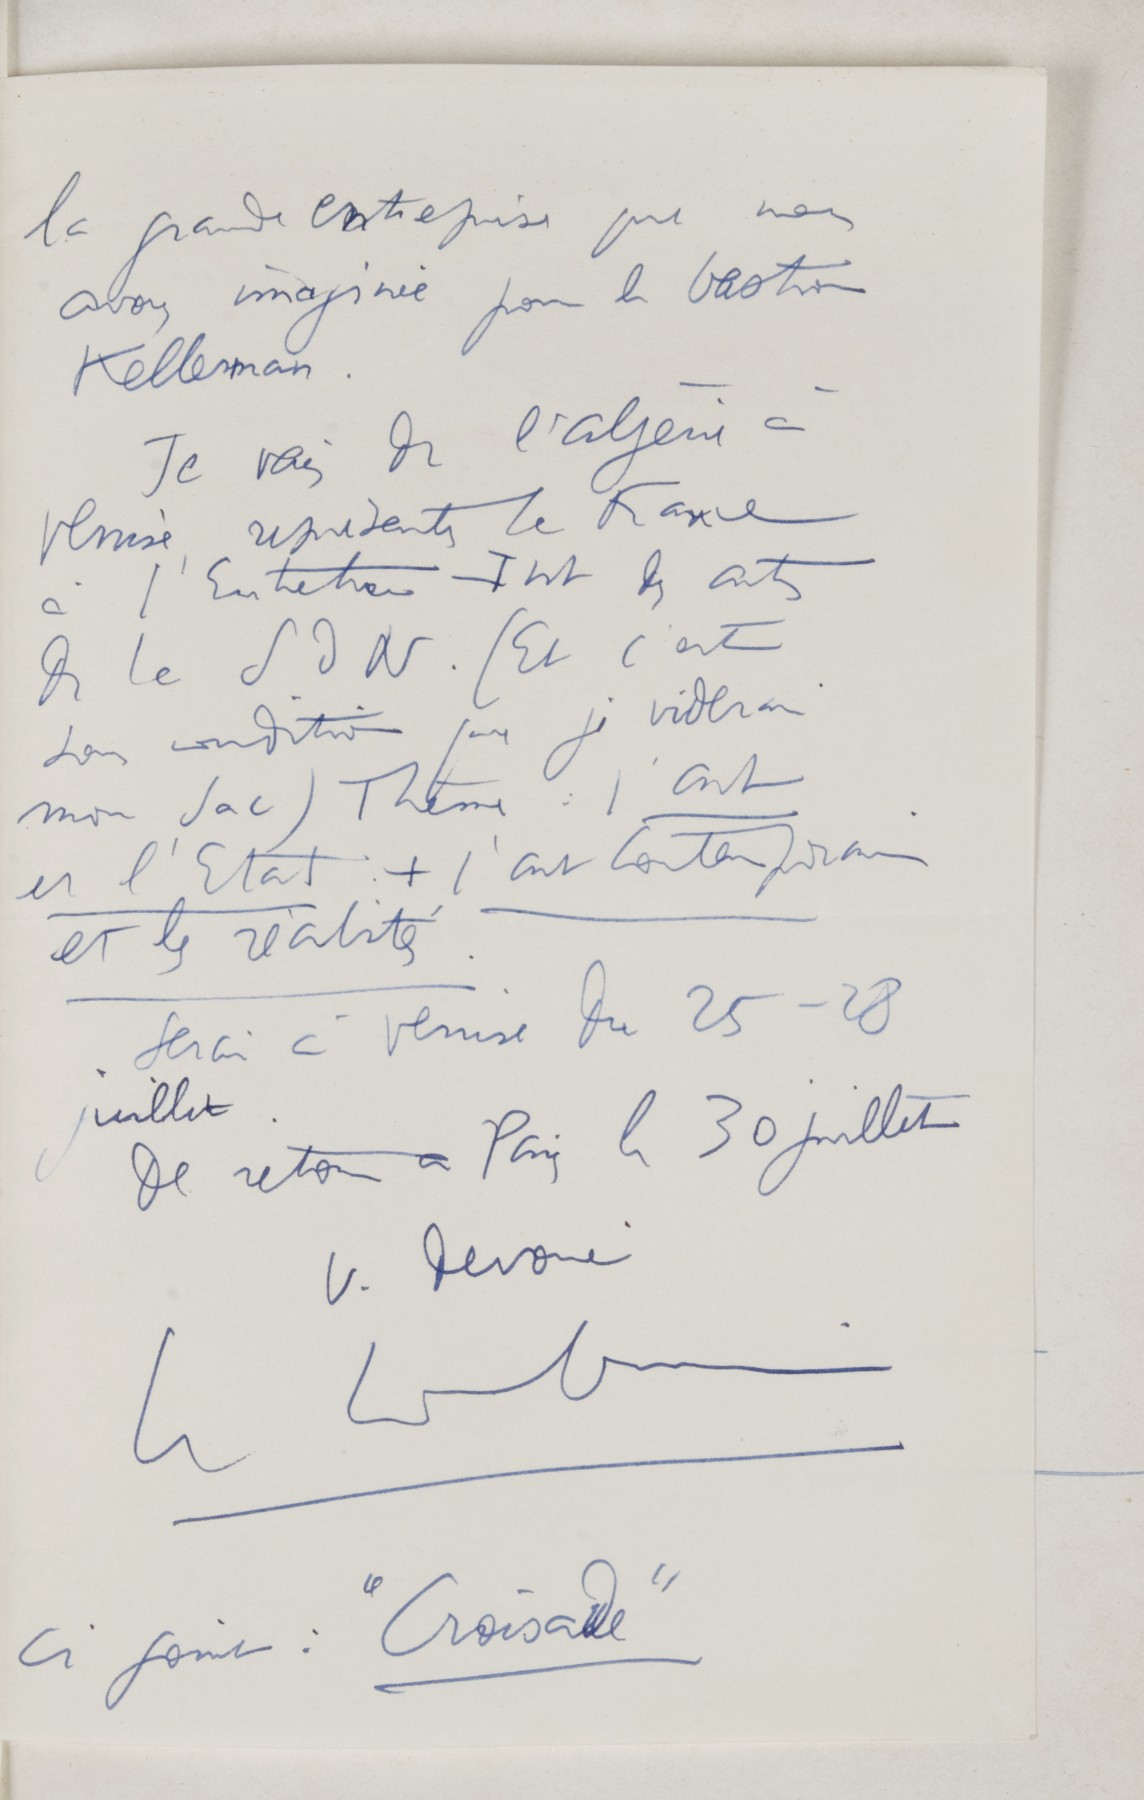 la grande entreprise que nous
avons imaginée pour le bastion
Kellerman.
Je vais de l'algérie à
Venise, représenter la France
à l'Entretien Int des arts
de la SDN. (Et c'est
sans condition que je viderai
mon sac) Thème : l'art
et l'Etat : + l'art contemporain
et les réalités.
serai à Venise du 25-28
juillet.
De retour a Paris le 30 juillet
V. Dévoué
Le Corbusier
Ci joint : "Croisade"